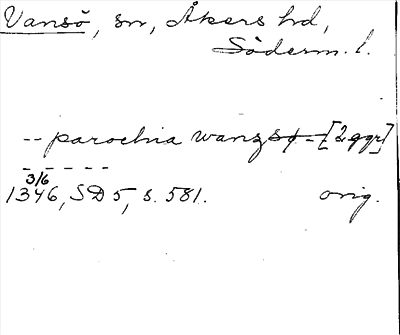 Vansö, sn, Åkers hd,
Söderm. l.
-- parochia wanzsø - [2 ggr]
- - - - -
3/6
1346, SD 5, s. 581. orig.